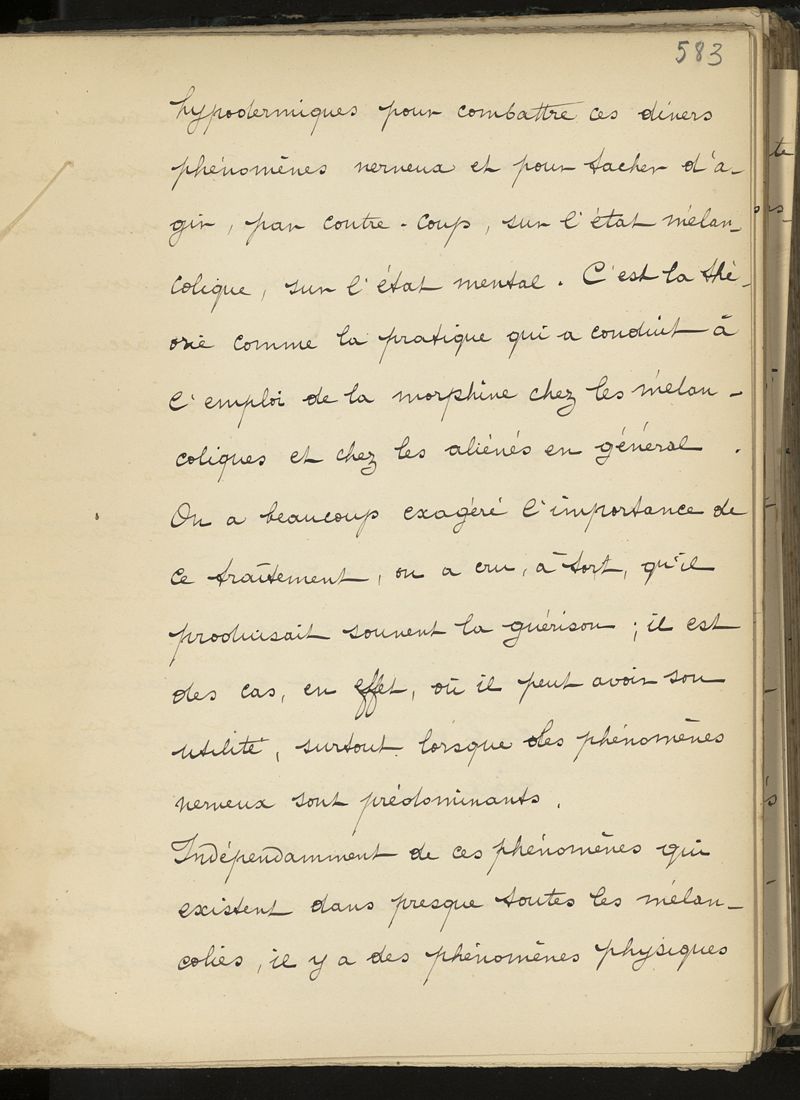 583
hypodermiques pour combattre ces divers
phénomènes nerveux et pour tacher d'a-
gir, par contre-coup, sur l'état mélan-
colique, sur l'état mental. C'est la thé-
orie comme la pratique qui a conduit à
l'emploi de la morphine chez les mélan-
coliques et chez les aliénés en général.
On a beaucoup exagéré l'importance de
ce traitement, on a cru, à tort, qu'il
produisait souvent la guérison ; il est
des cas, en effet, où il peut avoir son
utilité, surtout lorsque les phénomènes
nerveux sont prédominants.
Indépendamment de ces phénomènes qui
existent dans presque toutes les mélan-
colies, il y a des phénomènes physiques